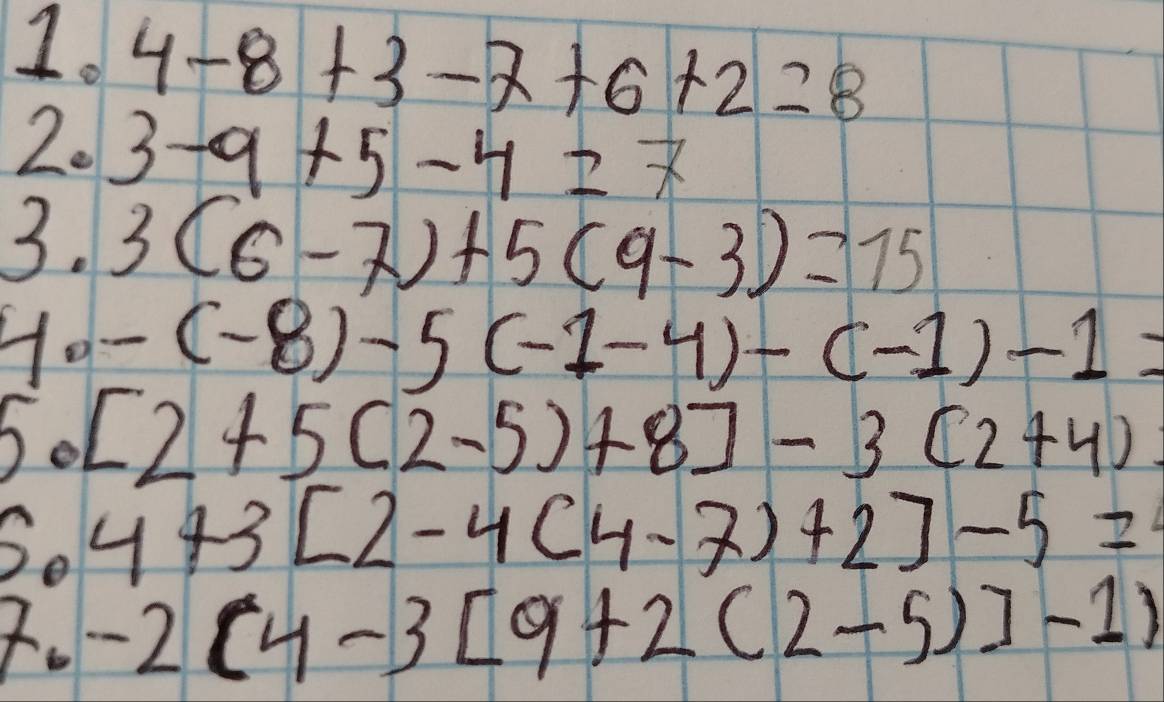 1. 4-8+3-7+6+2=8
2. 3-9+5-4=7
3. 3(6-7)+5(9-3)=15
4. -(-8)-5(-1-4)-(-1)-1=
5. [2+5(2-5)+8]-3(2+4)=
6. 4+3[2-4(4-7)+2]-5=
7. -2(4-3[9+2(2-5)]-1)